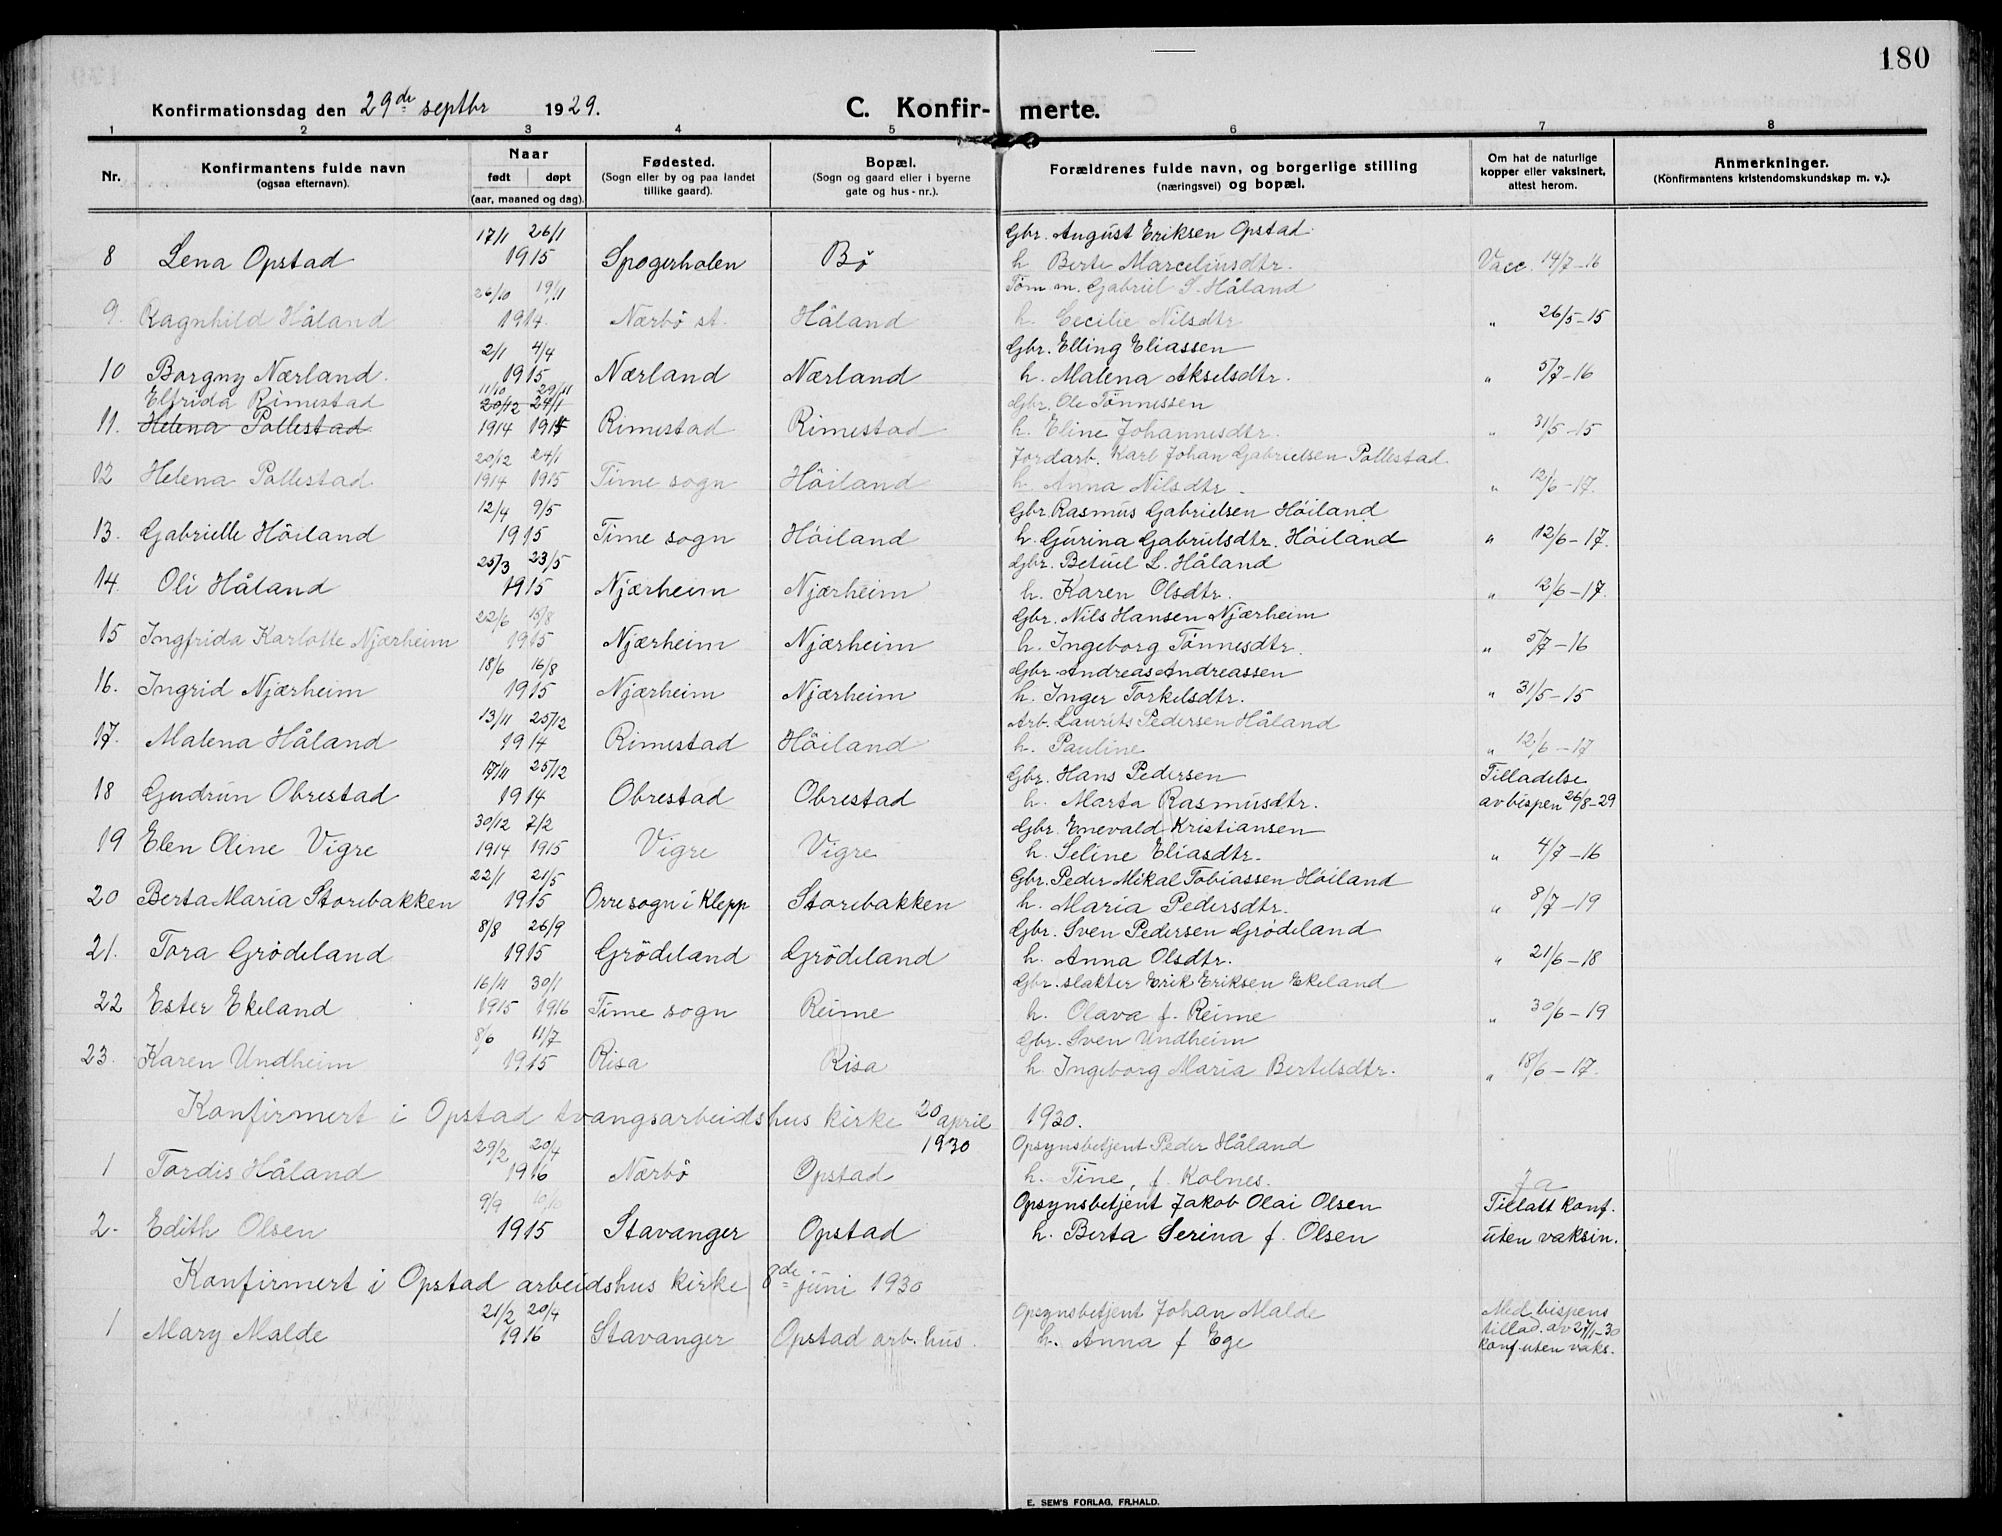 180
Konfirmationsdag den 29de septbr 1929. C. Konfir- merte.
1 2 3 4 5 6 7 8
Nr. Konfirmantens fulde navn (ogsaa efternavn). Naar født døpt (aar, maaned og dag). Fødested. (Sogn eller by og paa landet tillike gaard). Bopæl. (Sogn og gaard eller i byerne gate og hus-nr.). Forældrenes fulde navn, og borgerlige stilling (næringsvei) og bopæl. Om hat de naturlige kopper eller vaksinert, attest herom. Anmerkninger. (Konfirmantens kristendomskundskap m. v.).
17/1 26/1 Gbr. August Eriksen Opstad
8 Lena Opstad 1915 Bø h. Berte Marceliusdtr. Vacc. 14/7-16
26/10 19/11 Tøm m. Gabriel S. Håland
9 Ragnhild Håland 1914. Nærbö st. Håland h. Cecilie Nilsdtr " 26/5-15
2/1 4/4 Gbr. Elling Eliassen
10 Borgny Nærland. 1915 Nærland Nærland h. Malena Akselsdtr. " 5/7-16
Elfrida Rimestad 11/10 29/11 20/12 24/1 Gbr. Ole Tönnessen
11. Helena Pollestad 1914 1915 Rimestad Rimestad h. Eline Johannesdtr. " 31/5-15
20/12 24/1 Jordarb. Karl Johan Gabrielsen Pollestad
12 Helena Pollestad 1914 1915 Time sogn Höiland h. Anna Nilsdtr. " 12/6-17.
12/4 9/5 Gbr. Rasmus Gabrielsen Höiland
13. Gabrielle Höiland 1915 Time sogn Höiland h. Gurina Gabrielsdtr. Höiland " 12/6-17.
25/3 23/5 Gbr. Betuel L. Håland
14. Oli Håland 1915 Njærheim Njærheim h. Karen Olsdtr. " 12/6-17.
22/6 15/8 Gbr. Nils Hansen Njærheim
15 Ingfrida Karlotte Njærheim 1915 Njærheim Njærheim h. Ingeborg Tönnesdtr. " 5/7-16
18/6 16/8 Gbr. Andreas Andreassen
16. Ingrid Njærheim 1915 Njærheim Njærheim h. Inger Torkelsdtr. " 31/5-15
13/11 25/12 Arb. Laurits Pedersen Håland
17. Malena Håland 1914 Rimestad Höiland h. Pauline " 12/6-17
17/11 25/12 Gbr. Hans Pedersen Tilladelse
18 Gudrun Obrestad 1914 Obrestad Obrestad h. Marta Rasmusdtr. av bispen 26/8-29
30/12 7/2 Gbr. Enevald Kristiansen
19 Elen Oline Vigre 1914 1915 Vigre Vigre h. Seline Eliasdtr. " 4/7-16
22/1 21/5 Gbr. Peder Mikal Tobiassen Höiland
20 Berta Maria Storebakken 1915 Orre sogn i Klepp Storebakken h. Maria Pedersdtr. " 8/7-19
8/8 26/9 Gbr. Sven Pedersen Grødeland
21. Tora Grödeland 1915 Grödeland Grödeland h. Anna Olsdtr. " 21/6-18
16/11 30/1 Gbr. slakter Erik Eriksen Ekeland
22 Ester Ekeland 1915 1916 Time sogn Reime h. Olava f. Reime " 30/6-19
8/6 11/7 Gbr. Sven Undheim
23. Karen Undheim 1915 Risa Risa h. Ingeborg Maria Bertelsdtr. " 18/6-17.
Konfirmert i Opstad tvangsarbeidshus kirke 20 april 1930 1930.
29/2 20/4 Opsynsbetjent Peder Håland
1 Tordis Håland 1916 Nærbö Opstad h. Tine, f. Kolnes. Ja
9/9 10/10 Opsynsbetjent Jakob Olai Olsen Tillatt konf.
2- Edith Olsen 1915 Stavanger Opstad h. Berta Serina f. Olsen uten vaksin.
Konfirmert i Opstad arbeidshus kirke 8de juni 1930
21/2 20/4 Opsynsbetjent Johan Malde Med bispens
1 Mary Malde 1916 Stavanger Opstad arb. hus. h. Anna f Ege tillad. av 27/1-30
konf. uten vaks.
E. SEM'S FORLAG, FR.HALD.